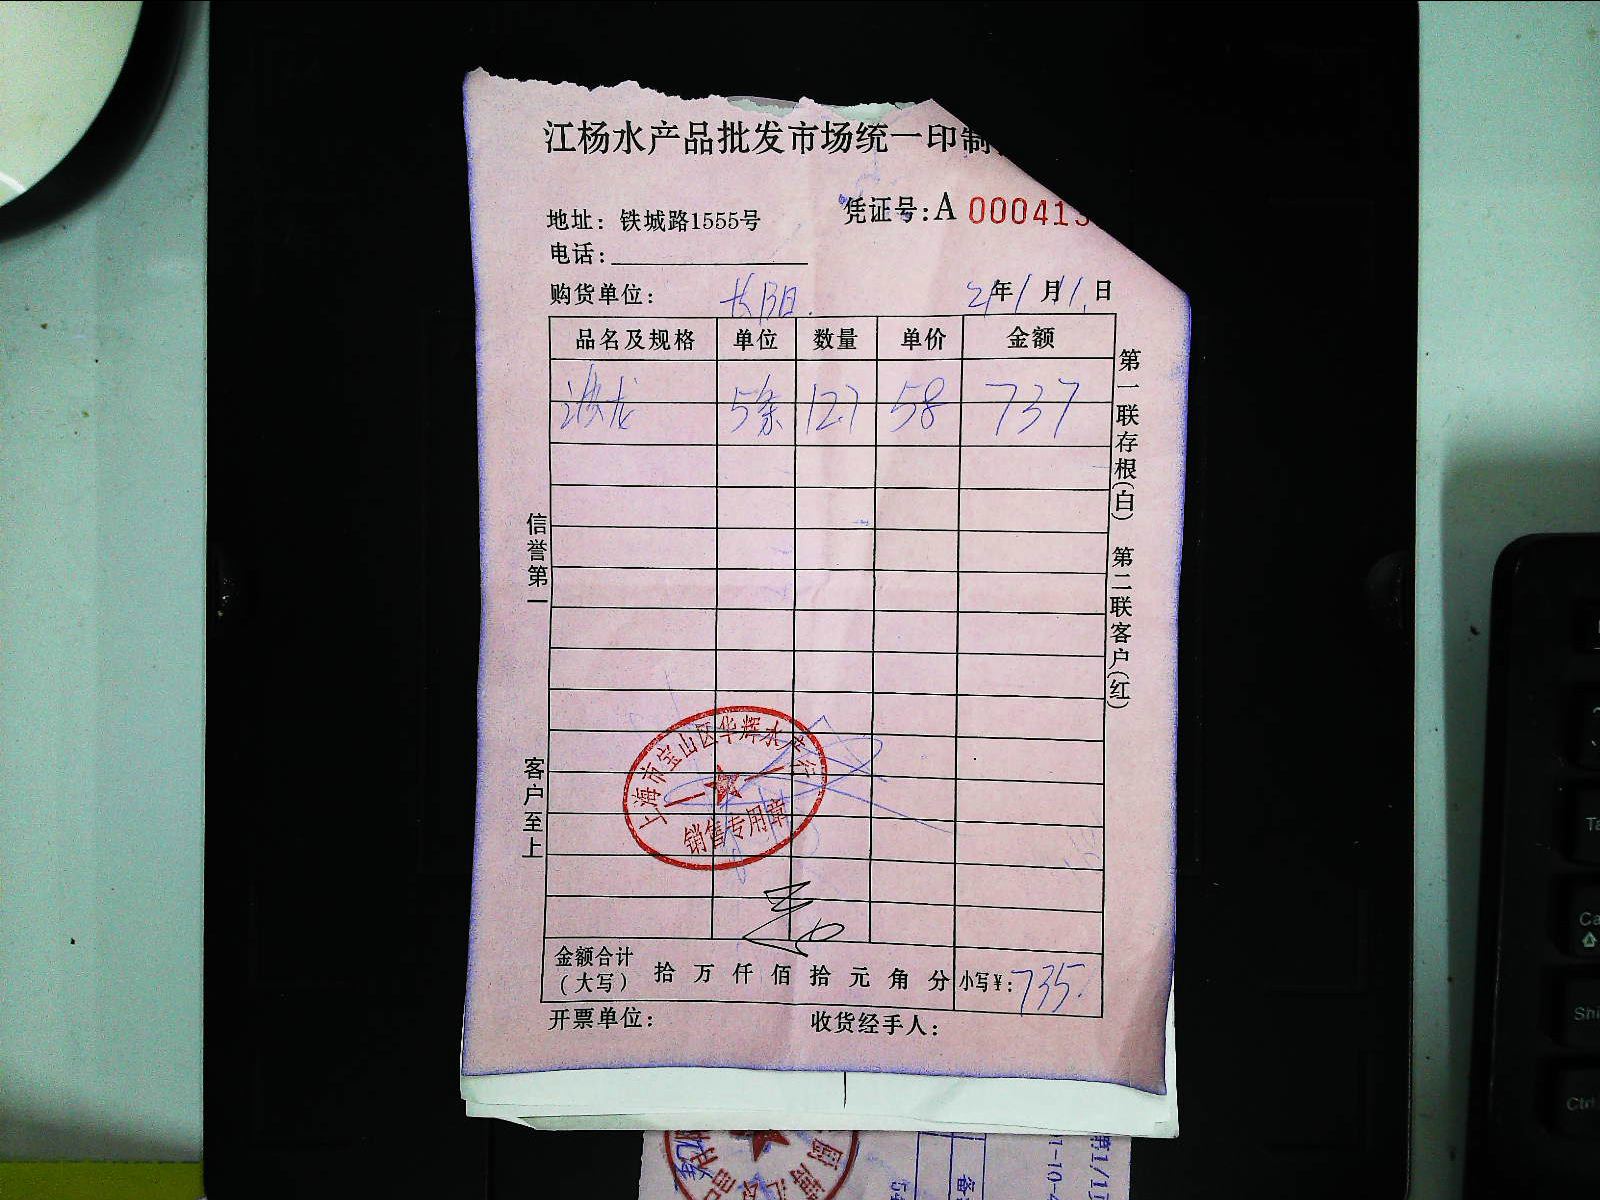 江杨水产品批发市场统一印制
地址：铁城路1555号
凭证号：A 000413
电话：
购货单位：
21年1月11日
品名及规格 单位 数量 单价 金额
龙 5条 12.7 58 737
第一联存根(白) 第二联客户(红)
信誉第一
客户至上
上海市宝山区华辉水产行
销售专用章
金额合计
(大写) 拾 万 仟 佰 拾 元 角 分 小写¥：735
开票单位： 收货经手人：